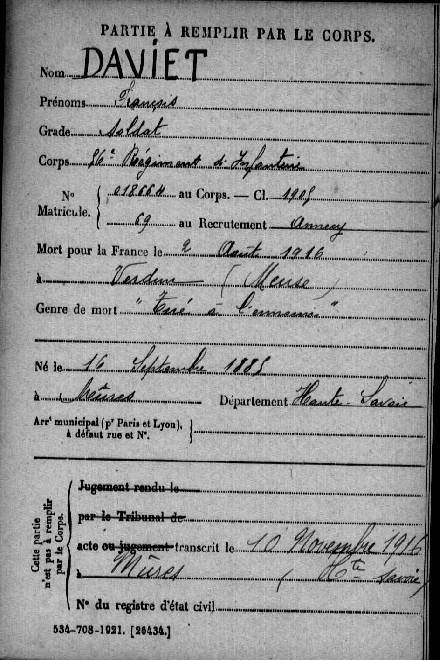 PARTIE À REMPLIR PAR LE CORPS.
Nom DAVIET
Prénoms François
Grade Soldat
Corps 86e Régiment d'Infanterie
No Matricule. 018664 au Corps. — Cl. 1905
69 au Recrutement Annecy
Mort pour la France le 2 Août 1916
à Verdun (Meuse)
Genre de mort "Tué à l'ennemi"
Né le 16 Septembre 1885
à Mûres Département Haute-Savoie
Arrt municipal (pr Paris et Lyon),
à défaut rue et No.
Cette partie n'est pas à remplir par le Corps.
Jugement rendu le
par le Tribunal de
acte ou jugement transcrit le 10 Novembre 1916
à Mûres (Hte Savoie)
No du registre d'état civil
534-708-1921. [26434.]